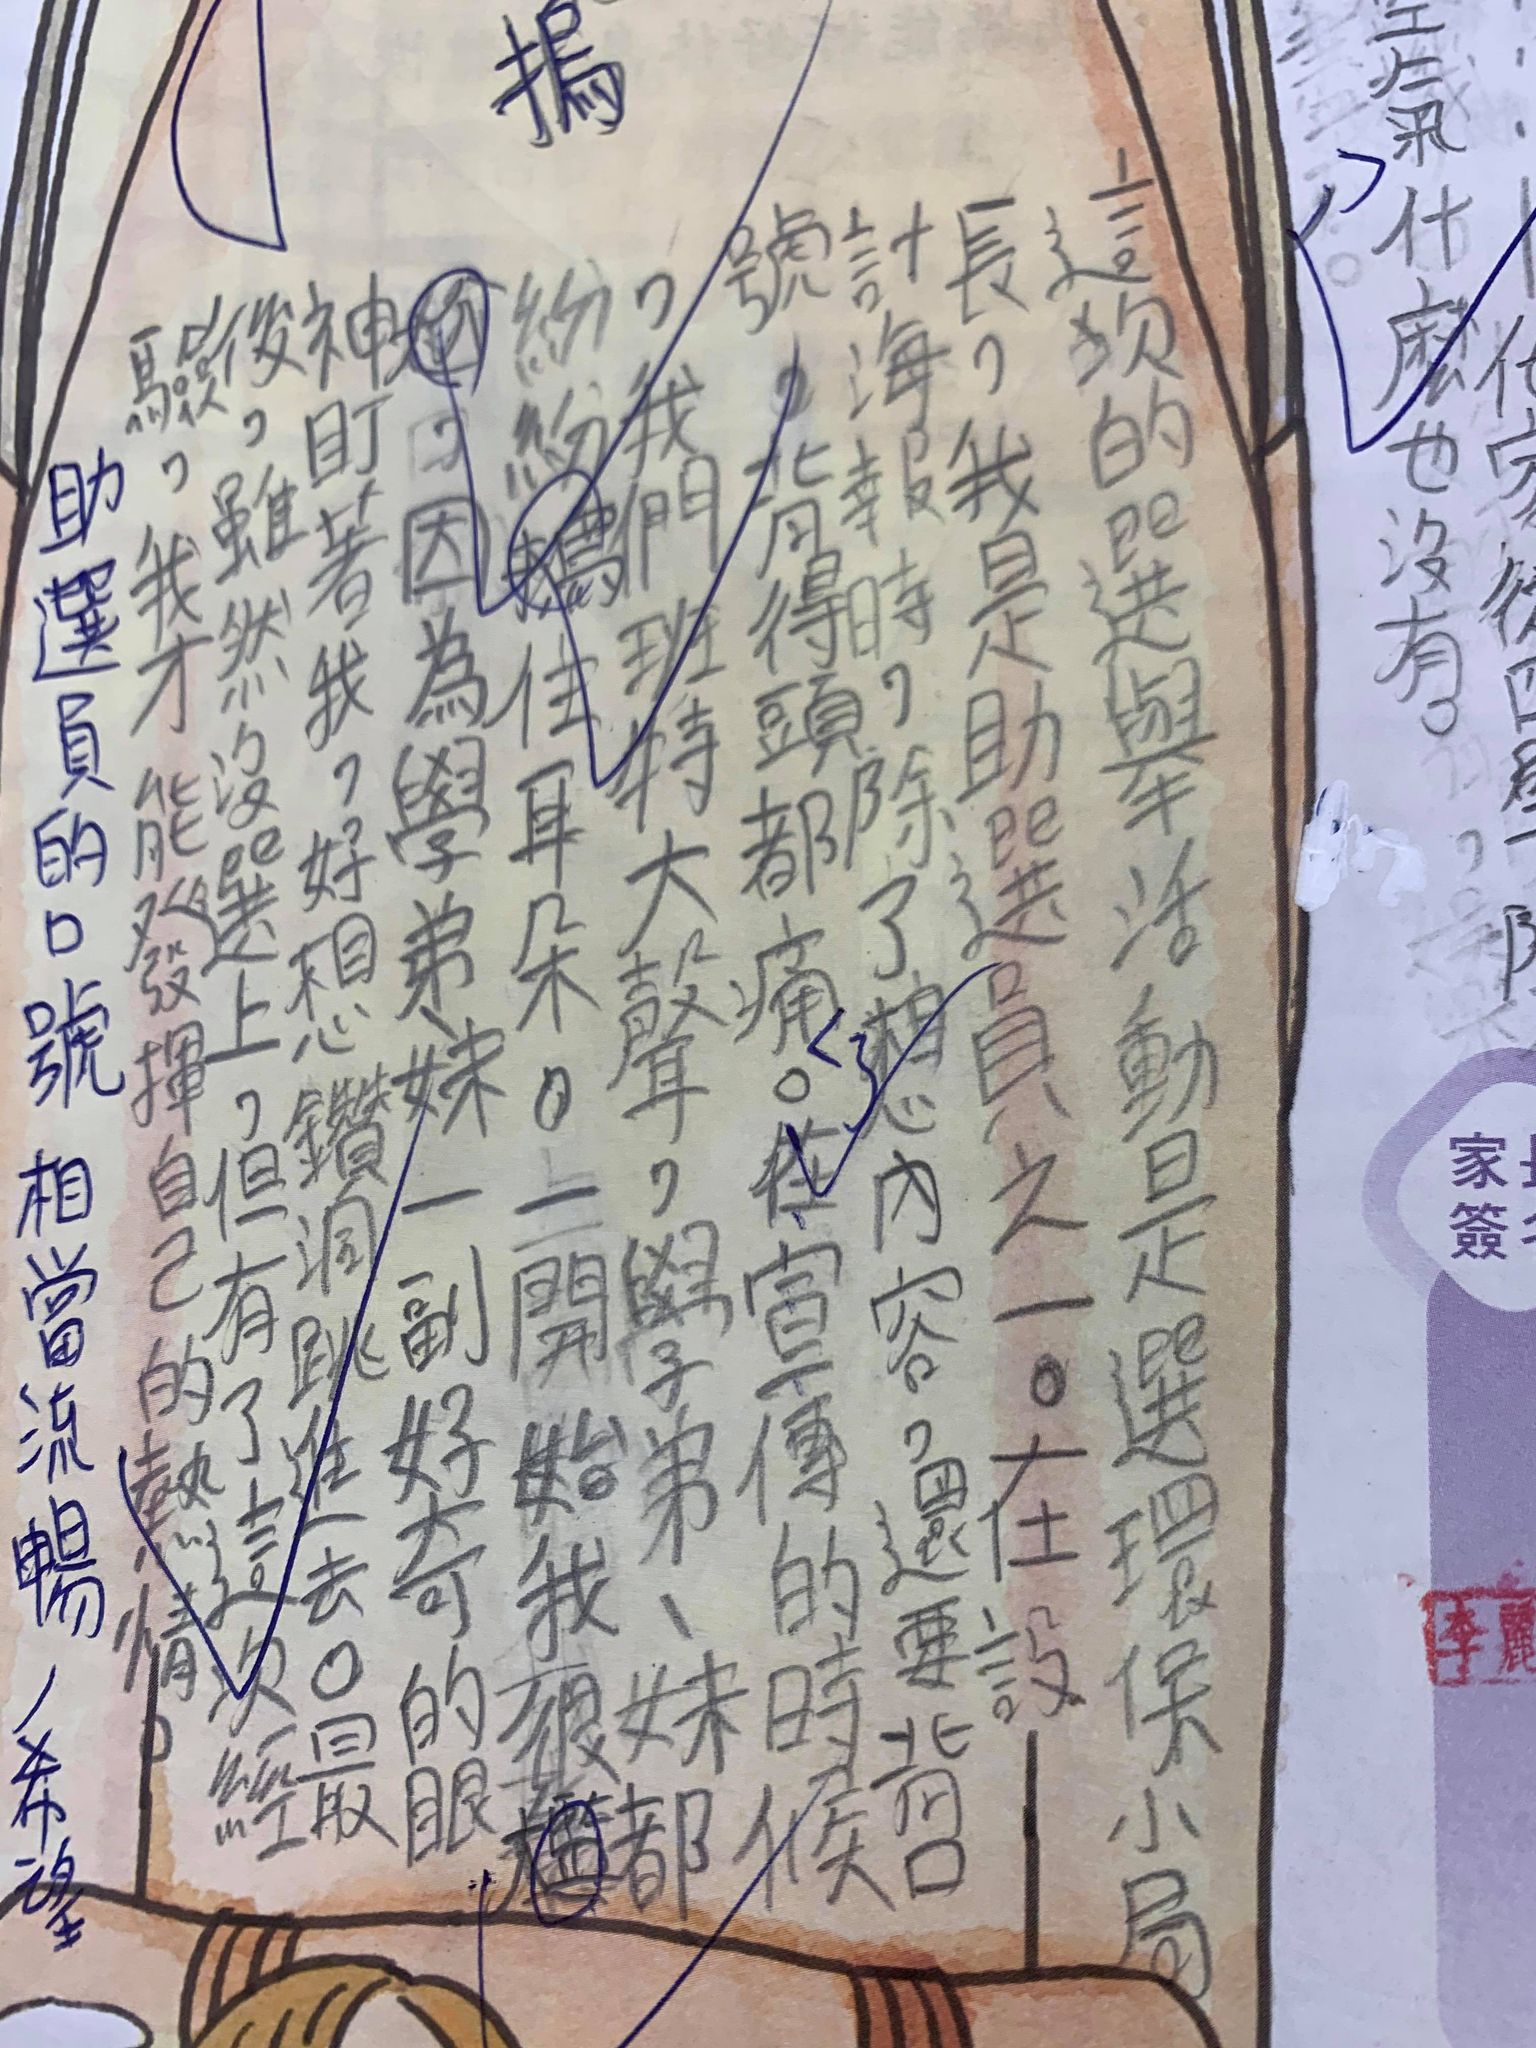 空氣什麼也沒有。
家
簽
李
這次的選舉活動是選環保小局
長，我是助選員之一。在設
計海報時，除了想內容，還要背口
號，背得頭都痛。在宣傳的時候
，我們班特大聲，學弟、妹都
紛紛摀住耳朵。一開始我很
，因為學弟、妹一副好奇的眼
神盯著我，好想鑽洞跳進去。最
後，雖然沒選上，但有了這次經
驗，我才能發揮自己的熱情。
摀
助選員的口號相當流暢，希望